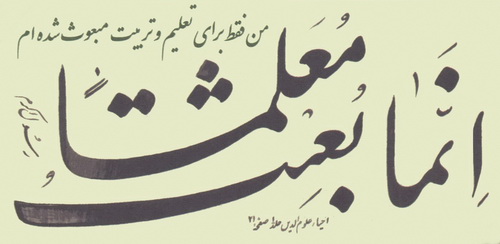 من فقط برای تعلیم و تربیت مبعوث شده ام
اِنَّمَا بُعِثتُ مُعَلِّمًا
احیاء علوم الدین صفحه ۲۱